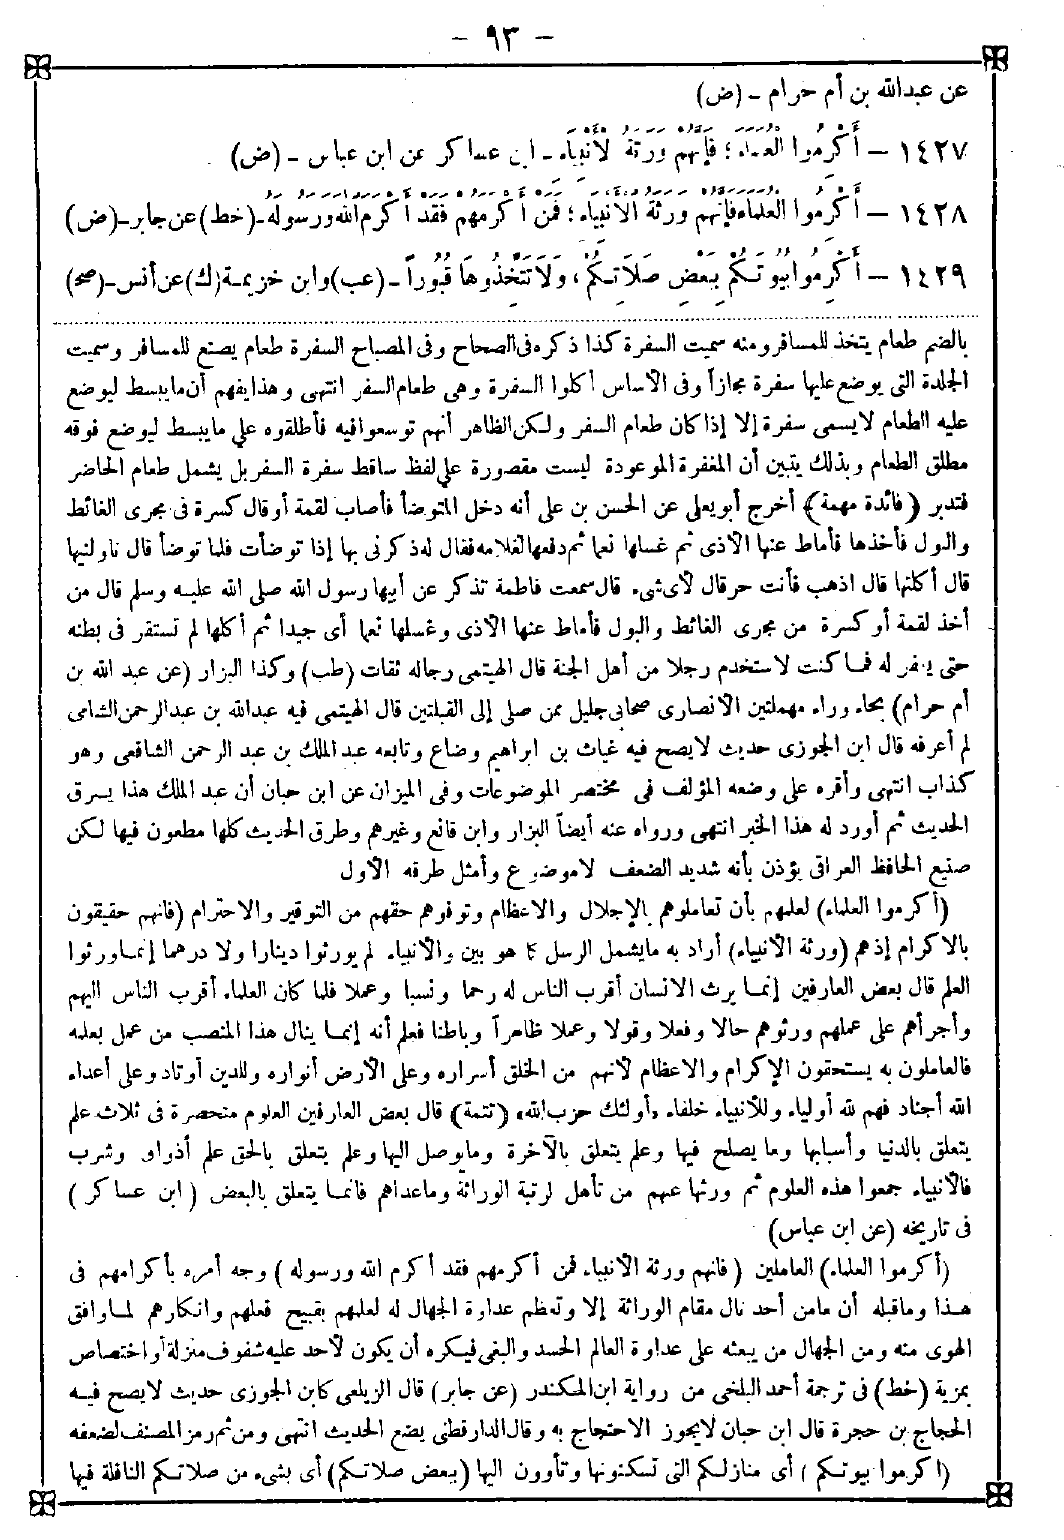 - ٩٣ -
عن عبدالله بن أم حرام - (ض)
١٤٢٧ - أَكْرِمُوا العُلَمَاءَ؛ فَإِنَّهُمْ وَرَثَةُ الْأَنْبِيَاءِ - ابن عساكر عن ابن عباس - (ض)
١٤٢٨ - أَكْرِمُوا العلماء فإنهم ورثة الأنبياء؛ فمن أكرمهم فقد أكرم الله ورسوله - (خط) عن جابر - (ض)
١٤٢٩ - أَكْرِمُوا بُيُوتَكُمْ بِبَعْضِ صَلَاتِكُمْ، وَلَا تَتَّخِذُوهَا قُبُوراً - (عب) وابن خزيمة (ك) عن أنس - (صح)
بالضم طعام يتخذ للمسافر ومنه سميت السفرة كذا ذكره فى الصحاح وفى المصباح السفرة طعام يصنع للمسافر وسميت
الجلدة التى يوضع عليها سفرة مجازاً وفى الأساس أكلوا السفرة وهى طعام السفر انتهى وهذا يفهم أن ما يبسط ليوضع
عليه الطعام لا يسمى سفرة إلا إذا كان طعام السفر ولكن الظاهر أنهم توسعوا فيه فأطلقوه على ما يبسط ليوضع فوقه
مطلق الطعام وبذلك يتبين أن المغفرة الموعودة ليست مقصورة على لفظ ساقط سفرة السفر بل يشمل طعام الحاضر
فتدبر (فائدة مهمة) أخرج أبو يعلى عن الحسن بن على أنه دخل المتوضأ فأصاب لقمة أو قال كسرة فى مجرى الغائط
والبول فأخذها فأماط عنها الأذى ثم غسلها نعما ثم دفعها لغلامه فقال له ذكرنى بها إذا توضأت فلما توضأ قال ناولنيها
قال أكلتها قال اذهب فأنت حر قال لأى شىء قال سمعت فاطمة تذكر عن أبيها رسول الله صلى الله عليه وسلم قال من
أخذ لقمة أو كسرة من مجرى الغائط والبول فأماط عنها الأذى وغسلها نعما أى جيدا ثم أكلها لم تستقر فى بطنه
حتى يغفر له فما كنت لاستخدم رجلا من أهل الجنة قال الهيتمى رجاله ثقات (طب) وكذا البزار (عن عبد الله بن
أم حرام) بحاء وراء مهملتين الأنصارى صحابى جليل ممن صلى إلى القبلتين قال الهيتمى فيه عبدالله بن عبدالرحمن الشامى
لم أعرفه قال ابن الجوزى حديث لا يصح فيه غياث بن ابراهيم وضاع وتابعه عبد الملك بن عبد الرحمن الشافعى وهو
كذاب انتهى وأقره على وضعه المؤلف فى مختصر الموضوعات وفى الميزان عن ابن حبان أن عبد الملك هذا يسرق
الحديث ثم أورد له هذا الخبر انتهى ورواه عنه أيضاً البزار وابن قانع وغيرهم وطرق الحديث كلها مطعون فيها لكن
صنيع الحافظ العراقى يؤذن بأنه شديد الضعف لا موضوع وأمثل طرقه الأول
(أكرموا العلماء) لعلمهم بأن تعاملوهم بالإجلال والاعظام وتوفوهم حقهم من التوقير والاحترام (فانهم حقيقون
بالاكرام إذ هم (ورثة الأنبياء) أراد به ما يشمل الرسل كما هو بين والأنبياء لم يورثوا دينارا ولا درهما إنما ورثوا
العلم قال بعض العارفين إنما يرث الانسان أقرب الناس له رحما ونسبا وعملا فلما كان العلماء أقرب الناس اليهم
وأجرأهم على عملهم ورثوهم حالا وفعلا وقولا وعملا ظاهراً وباطنا فعلم أنه إنما ينال هذا المنصب من عمل بعلمه
فالعاملون به يستحقون الإكرام والاعظام لأنهم من الخلق أسراره وعلى الأرض أنواره وللدين أوتاد وعلى أعداء
الله أجناد فهم لله أولياء وللأنبياء خلفاء «أولئك حزب الله» (تتمة) قال بعض العارفين العلوم منحصرة فى ثلاث علم
يتعلق بالدنيا وأسبابها وما يصلح فيها وعلم يتعلق بالآخرة وما يوصل اليها وعلم يتعلق بالحق علم أذواق وشرب
فالأنبياء جمعوا هذه العلوم ثم ورثها عنهم من تأهل لرتبة الوراثة وما عداهم فانما يتعلق بالبعض (ابن عساكر)
فى تاريخه (عن ابن عباس)
(أكرموا العلماء) العاملين (فانهم ورثة الأنبياء فمن أكرمهم فقد أكرم الله ورسوله) وجه أمره بأكرامهم فى
هذا وما قبله أن ما من أحد نال مقام الوراثة إلا وتعظم عداوة الجهال له لعلمهم بقبيح فعلهم وانكارهم لما وافق
الهوى منه ومن الجهال من يبعثه على عداوة العالم الحسد والبغى فيكره أن يكون لأحد عليه شفوف منزلة أو اختصاص
بمزية (خط) فى ترجمة أحمد البلخى من رواية ابن المنكدر (عن جابر) قال الزيلعى كابن الجوزى حديث لا يصح فيه
الحجاج بن حجرة قال ابن حبان لا يجوز الاحتجاج به وقال الدارقطنى يضع الحديث انتهى ومن ثم رمز المصنف لضعفه
(اكرموا بيوتكم) أى منازلكم التى تسكنونها وتأوون اليها (ببعض صلاتكم) أى بشىء من صلاتكم النافلة فيها